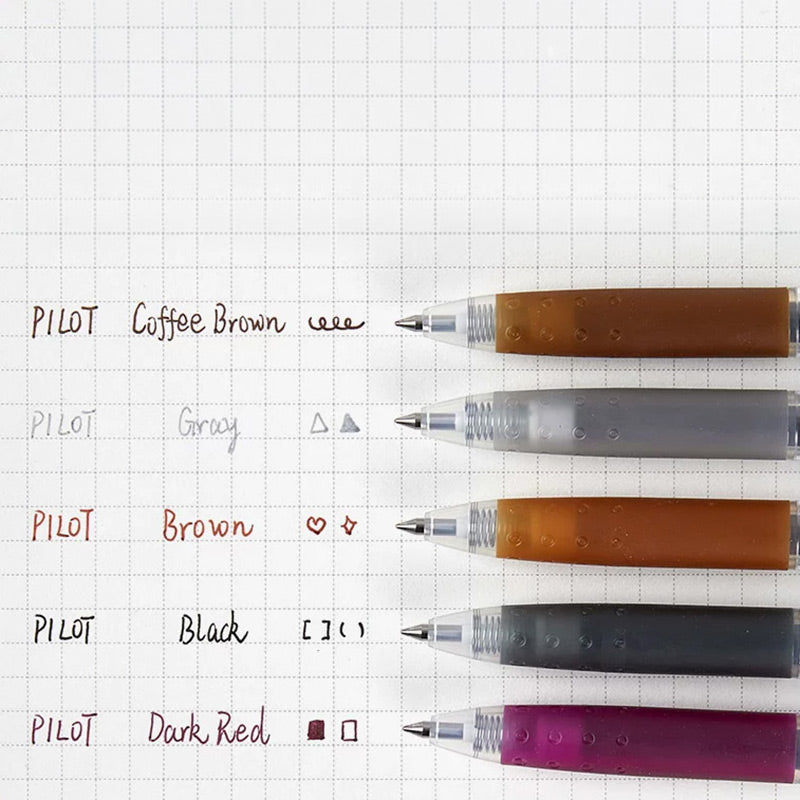 PILOT Coffee Brown
PILOT Gray
PILOT Brown
PILOT Black [ ] ( )
PILOT Dark Red